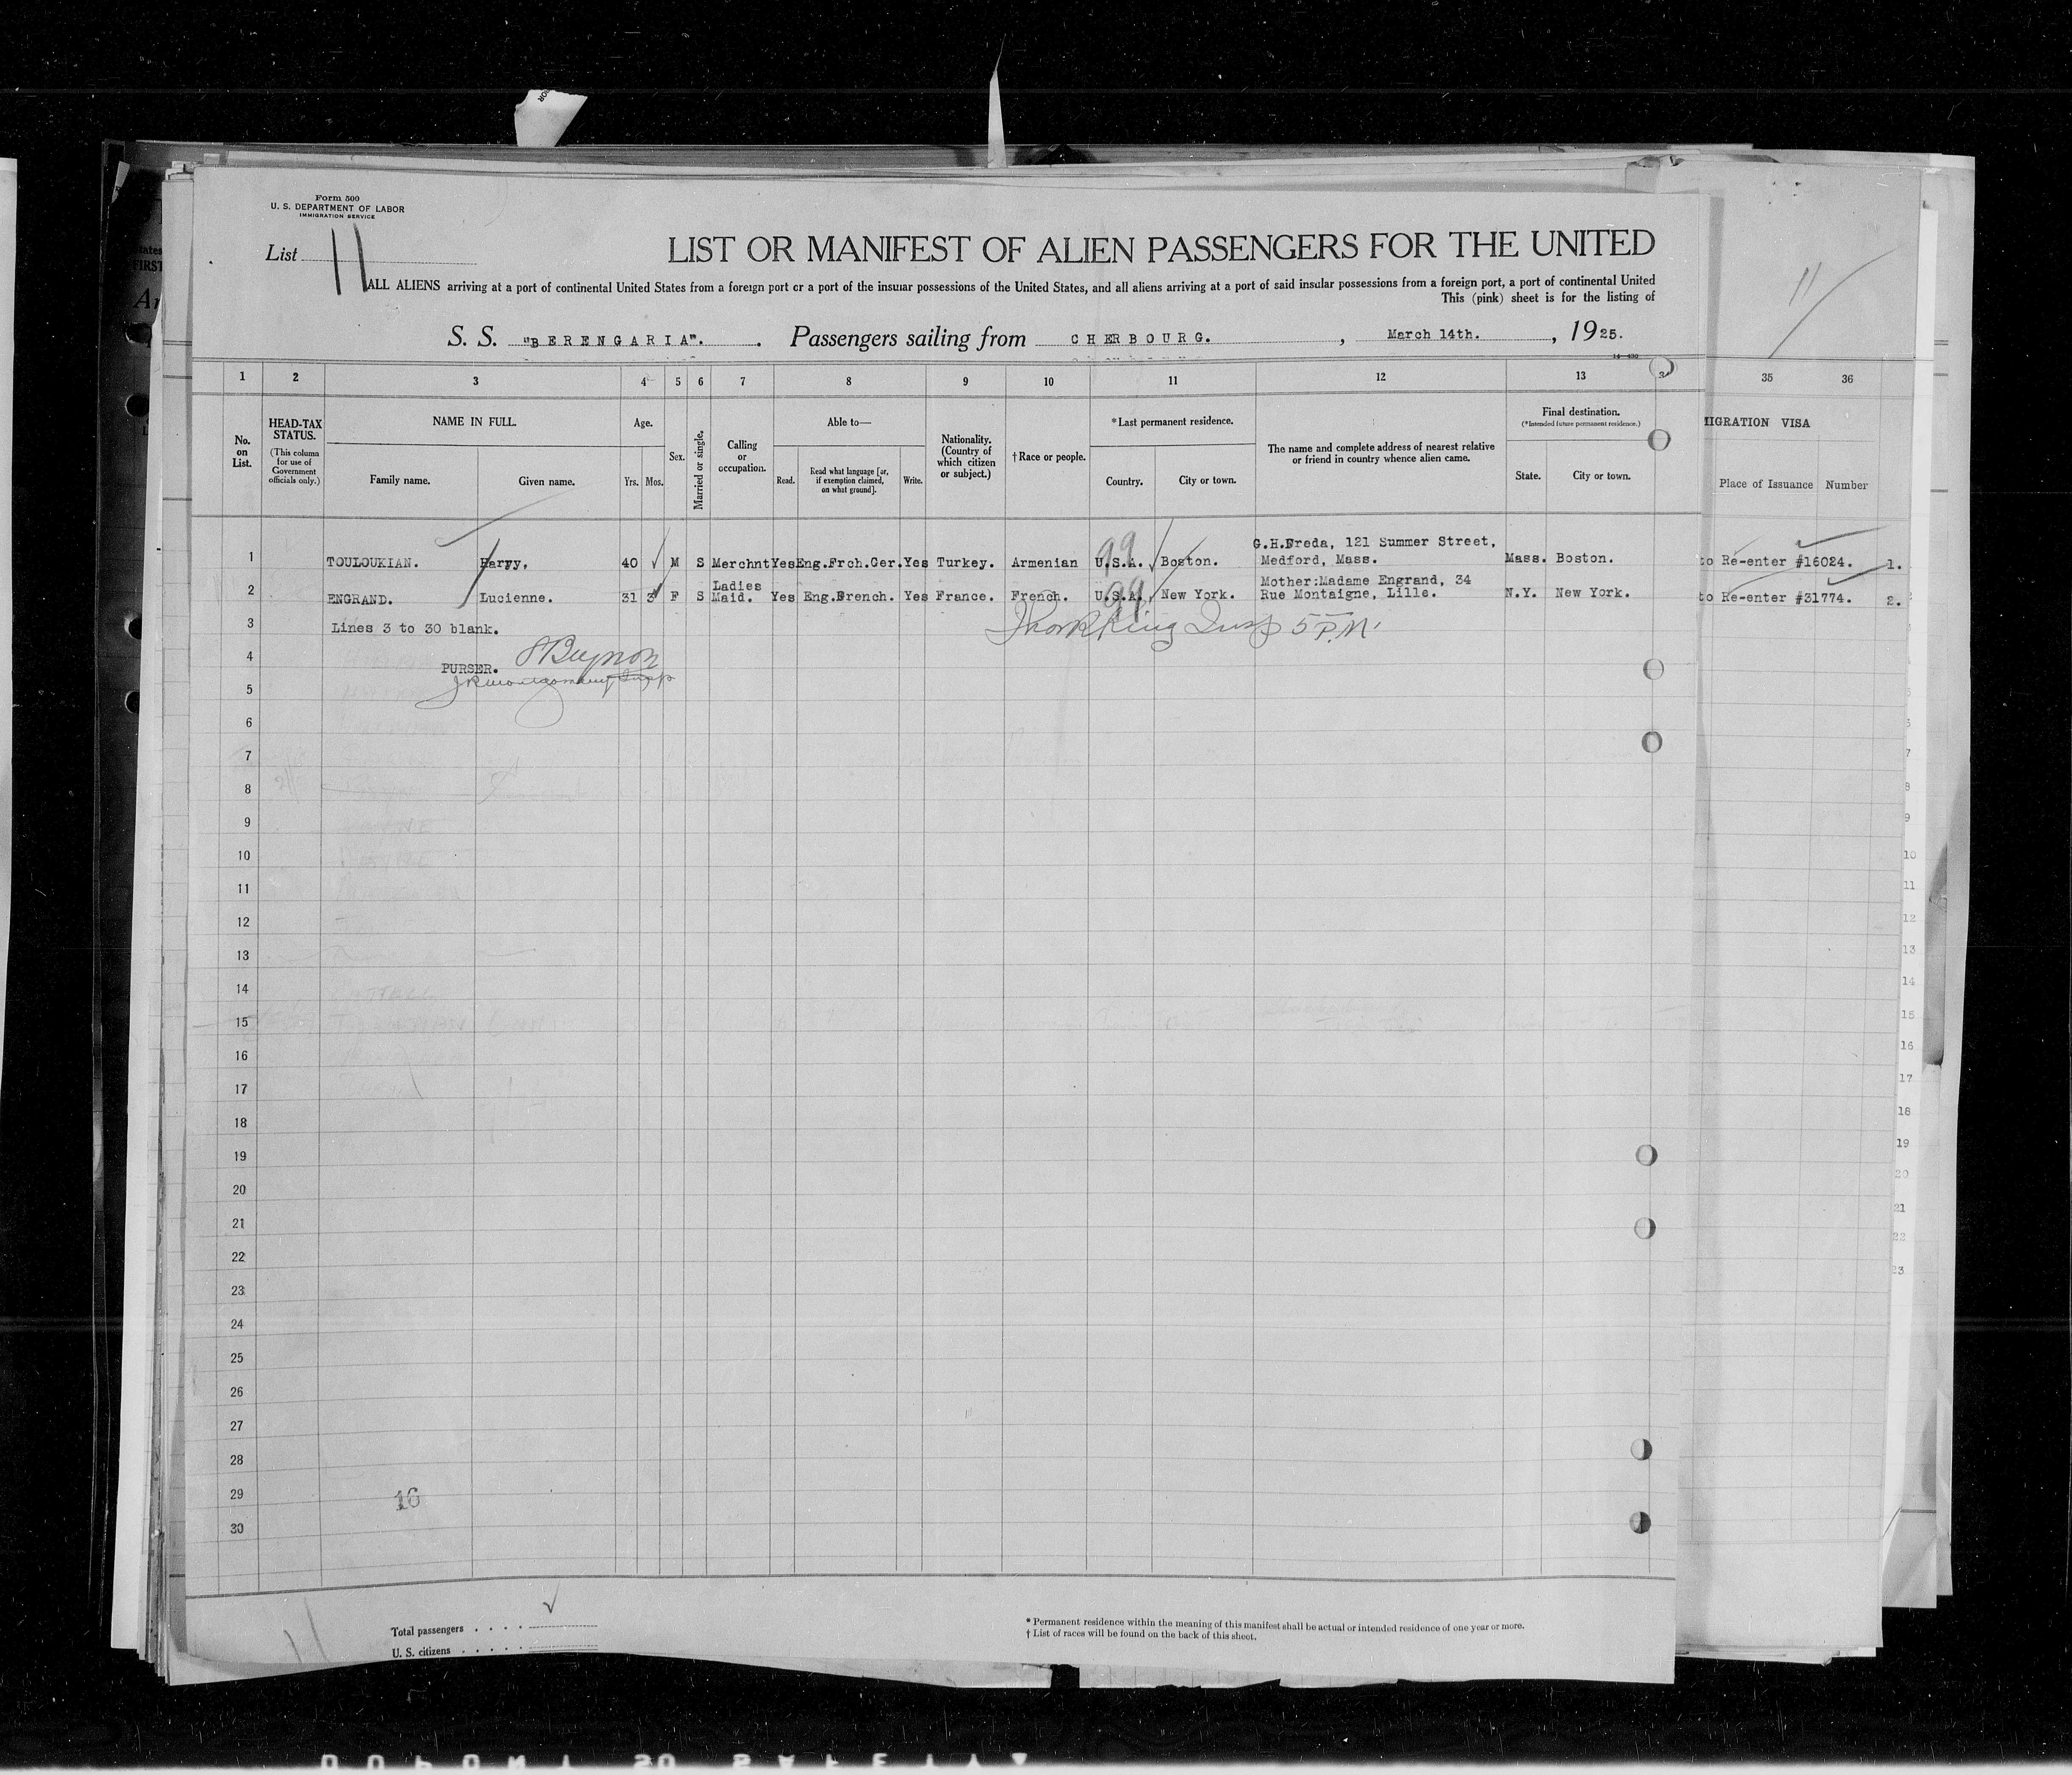 Form 500
U. S. DEPARTMENT OF LABOR
IMMIGRATION SERVICE
List 11
LIST OR MANIFEST OF ALIEN PASSENGERS FOR THE UNITED
ALL ALIENS arriving at a port of continental United States from a foreign port or a port of the insular possessions of the United States, and all aliens arriving at a port of said insular possessions from a foreign port, a port of continental United
This (pink) sheet is for the listing of
S. S. "BERENGARIA". Passengers sailing from CHERBOURG. , March 14th. , 1925.
14-430
1 2 3 4 5 6 7 8 9 10 11 12 13 35 36
No. on List.
HEAD-TAX STATUS.
(This column for use of Government officials only.)
NAME IN FULL.
Family name. Given name.
Age.
Yrs. Mos.
Sex.
Married or single.
Calling or occupation.
Able to—
Read. Read what language [or, if exemption claimed, on what ground]. Write.
Nationality. (Country of which citizen or subject.)
† Race or people.
* Last permanent residence.
Country. City or town.
The name and complete address of nearest relative or friend in country whence alien came.
Final destination.
(*Intended future permanent residence.)
State. City or town.
MIGRATION VISA
Place of Issuance Number
11
1 TOULOUKIAN. Harry, 40 M S Merchnt Yes Eng.Frch.Ger. Yes Turkey. Armenian U.S.A. Boston. G.H.Freda, 121 Summer Street, Medford, Mass. Mass. Boston. to Re-enter #16024. 1.
99
2 ENGRAND. Lucienne. 31 3 F S Ladies Maid. Yes Eng.French. Yes France. French. U.S.A. New York. Mother:Madame Engrand, 34 Rue Montaigne, Lille. N.Y. New York. to Re-enter #31774. 2.
99
3 Lines 3 to 30 blank.
King Insp 5 P.M.
4 PURSER.
JR Montgomery Insp
5
6
7
8
9
10
11
12
13
14
15
16
17
18
19
20
21
22
23
24
25
26
27
28
29
16
30
Total passengers . . . .
U. S. citizens . . . . .
11
* Permanent residence within the meaning of this manifest shall be actual or intended residence of one year or more.
† List of races will be found on the back of this sheet.